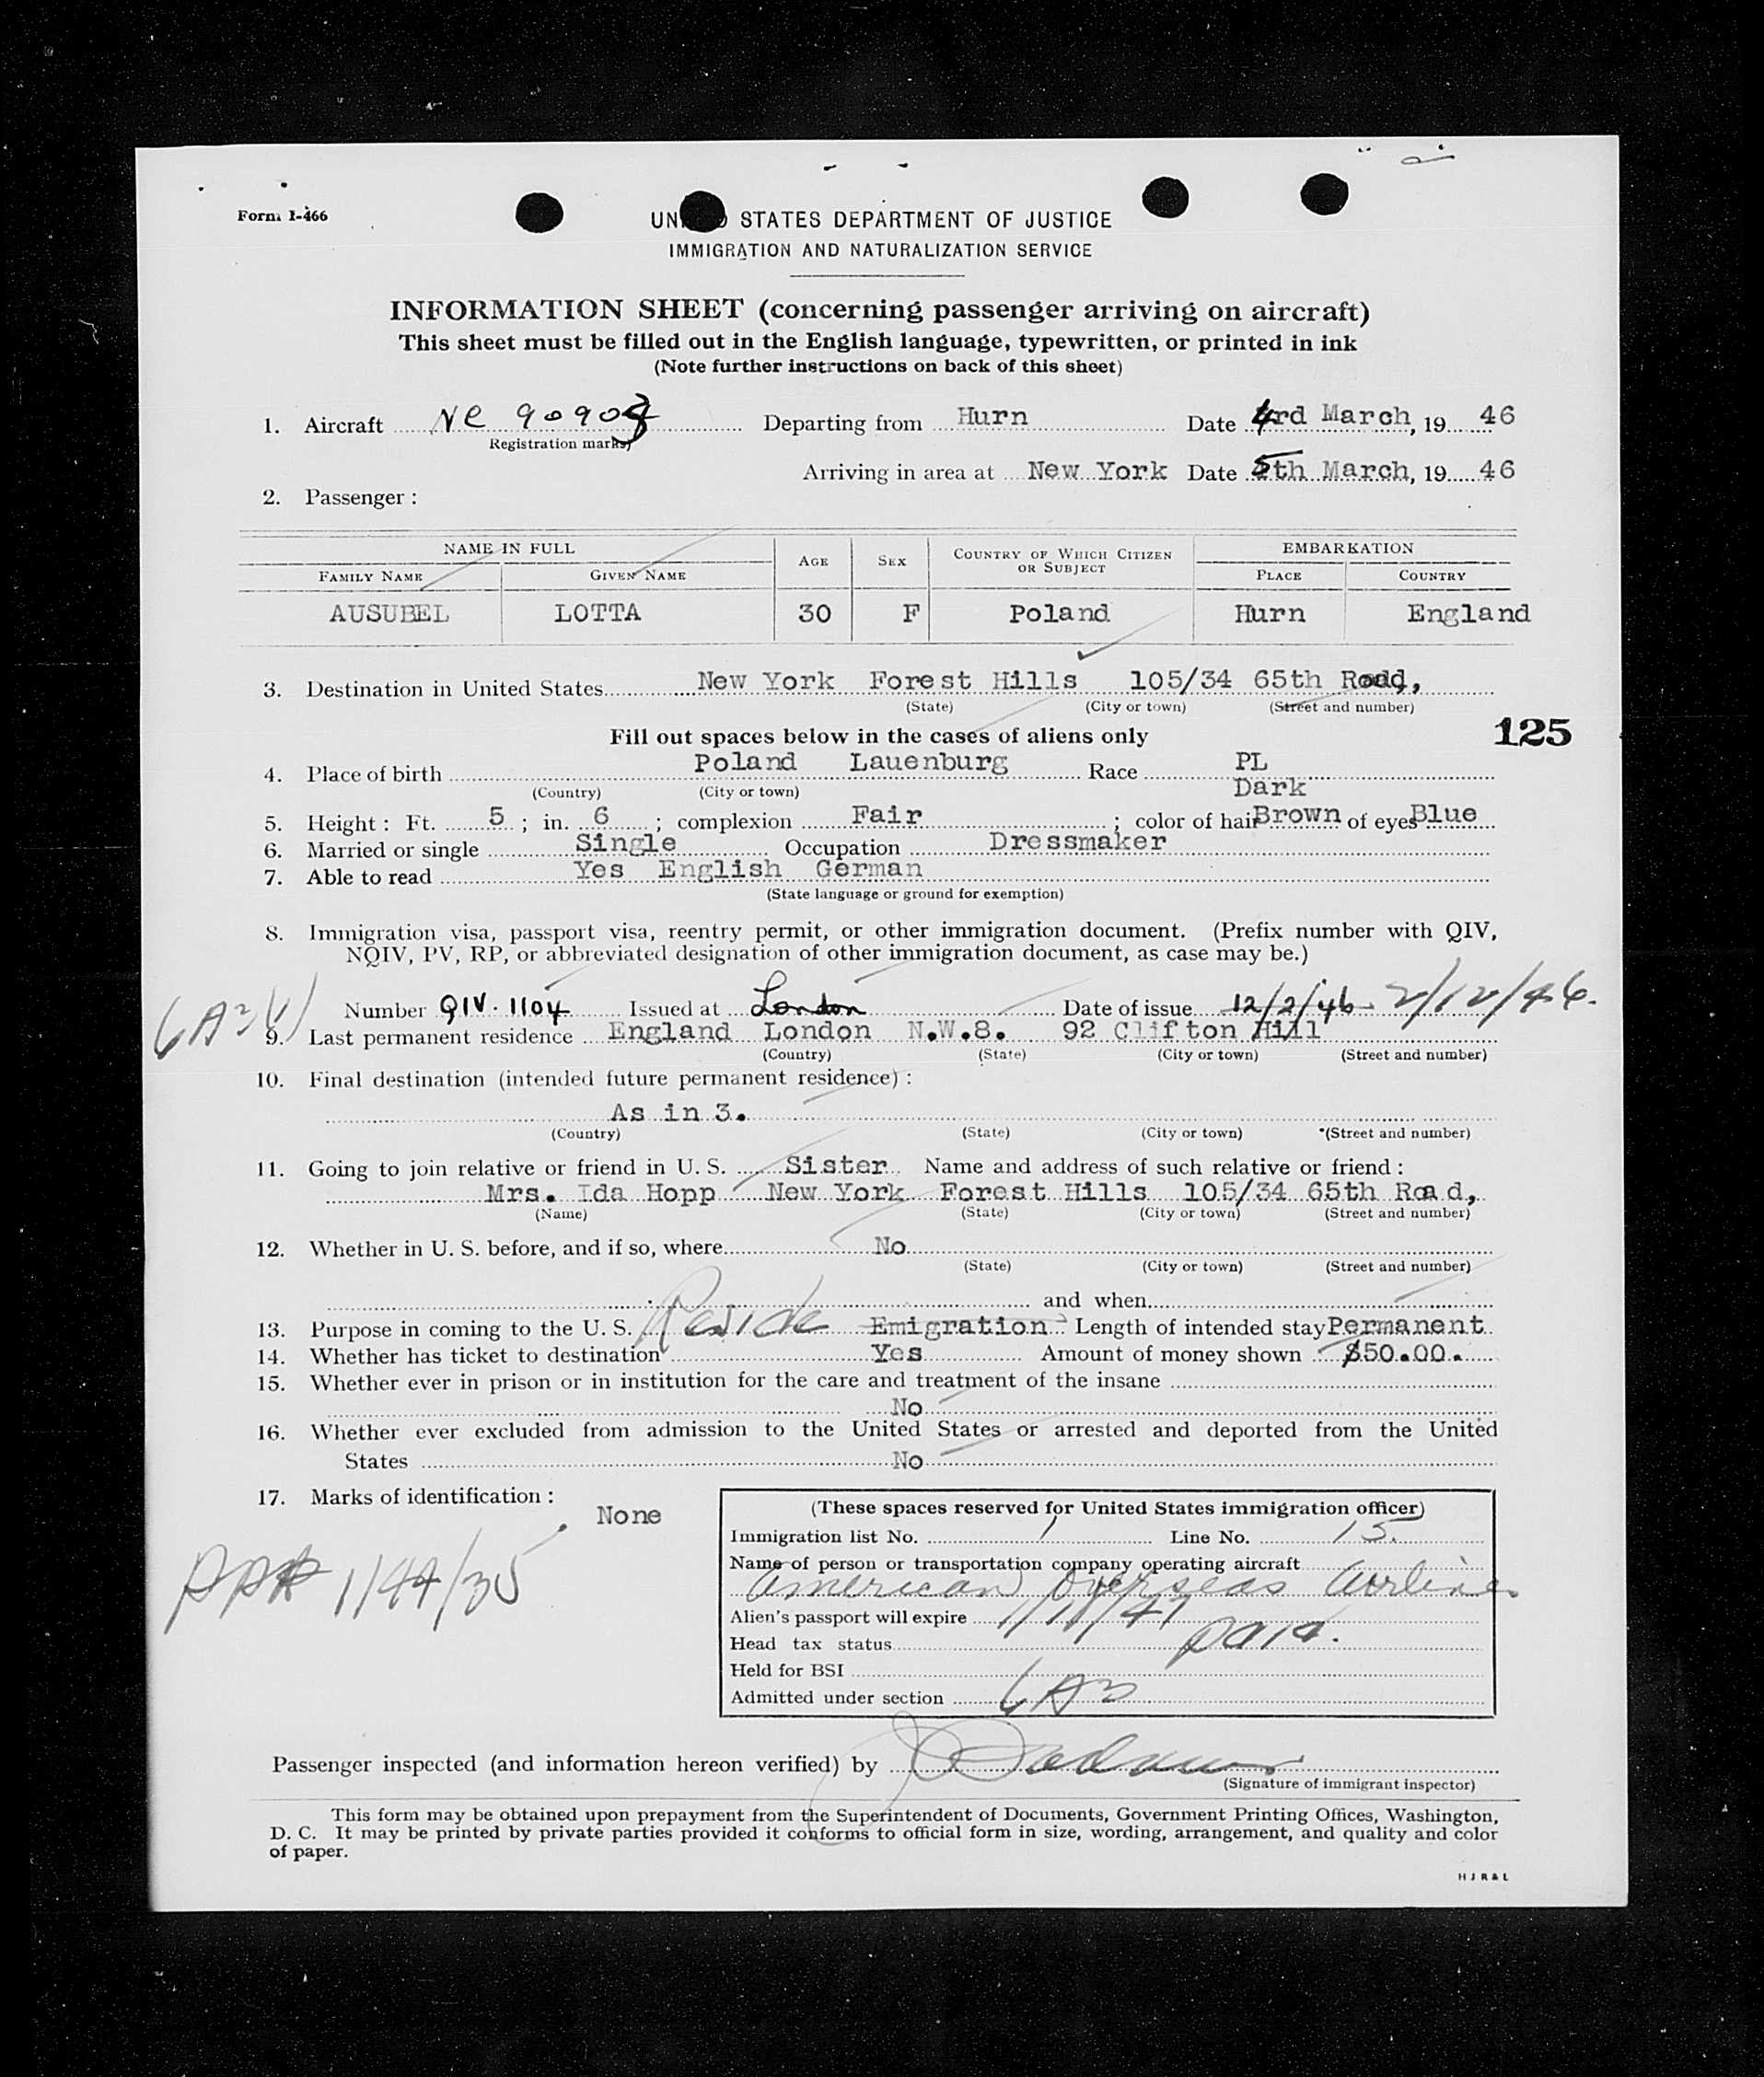 Form I-466
UNITED STATES DEPARTMENT OF JUSTICE
IMMIGRATION AND NATURALIZATION SERVICE
INFORMATION SHEET (concerning passenger arriving on aircraft)
This sheet must be filled out in the English language, typewritten, or printed in ink
(Note further instructions on back of this sheet)
1. Aircraft NC 90909 Departing from Hurn Date 4rd March, 19 46
(Registration marks)
Arriving in area at New York Date 5th March, 19 46
2. Passenger :
NAME IN FULL AGE SEX COUNTRY OF WHICH CITIZEN OR SUBJECT EMBARKATION
FAMILY NAME GIVEN NAME PLACE COUNTRY
AUSUBEL LOTTA 30 F Poland Hurn England
3. Destination in United States New York Forest Hills 105/34 65th Road,
(State) (City or town) (Street and number)
125
Fill out spaces below in the cases of aliens only
4. Place of birth Poland Lauenburg Race PL
(Country) (City or town) Dark
5. Height : Ft. 5 ; in. 6 ; complexion Fair ; color of hair Brown of eyes Blue
6. Married or single Single Occupation Dressmaker
7. Able to read Yes English German
(State language or ground for exemption)
8. Immigration visa, passport visa, reentry permit, or other immigration document. (Prefix number with QIV,
NQIV, PV, RP, or abbreviated designation of other immigration document, as case may be.)
Number QIV. 1104 Issued at London Date of issue 12/2/46 2/12/46.
6A3(1)
9. Last permanent residence England London N.W.8. 92 Clifton Hill
(Country) (State) (City or town) (Street and number)
10. Final destination (intended future permanent residence) :
As in 3.
(Country) (State) (City or town) (Street and number)
11. Going to join relative or friend in U. S. Sister Name and address of such relative or friend :
Mrs. Ida Hopp New York Forest Hills 105/34 65th Road,
(Name) (State) (City or town) (Street and number)
12. Whether in U. S. before, and if so, where No
(State) (City or town) (Street and number)
and when
13. Purpose in coming to the U. S. Reside Emigration Length of intended stay Permanent
14. Whether has ticket to destination Yes Amount of money shown $50.00.
15. Whether ever in prison or in institution for the care and treatment of the insane
No
16. Whether ever excluded from admission to the United States or arrested and deported from the United
States No
17. Marks of identification :
None
1/44/35
(These spaces reserved for United States immigration officer)
Immigration list No. 1 Line No. 15.
Name of person or transportation company operating aircraft
American Overseas Airlines
Alien's passport will expire 1/11/47
Head tax status paid.
Held for BSI
Admitted under section 6A3
Passenger inspected (and information hereon verified) by
(Signature of immigrant inspector)
This form may be obtained upon prepayment from the Superintendent of Documents, Government Printing Offices, Washington,
D. C. It may be printed by private parties provided it conforms to official form in size, wording, arrangement, and quality and color
of paper.
H J R & L